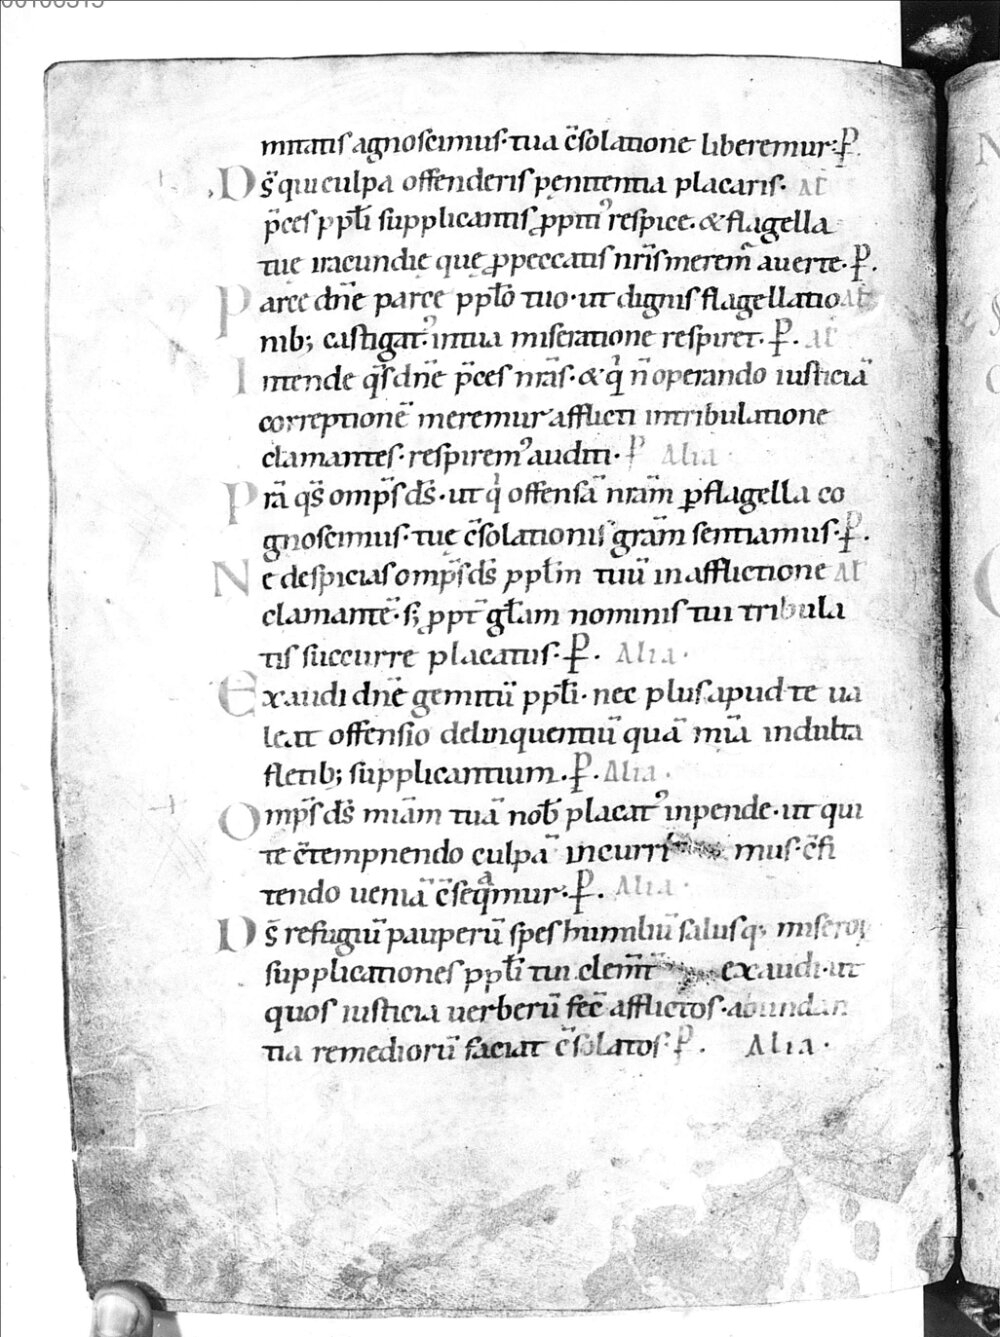 mitatis agnoscimus· tua c̄solatione liberemur· P̄.
Ds̄ qui culpa offenderis penitentia placaris. Al̄
p̄ces ppl̄i supplicantis ꝓpitiꝰ respice. & flagella
tuę iracundię quę ꝓ peccatis nr̄is meremr̄ auerte. P̄.
Parce dn̄e parce ppl̄o tuo· ut dignis flagellatio Al̄
nib; castigatꝰ· in tua miseratione respiret. P̄. Al̄
Intende q̄s dn̄e p̄ces nr̄as· & qͥ n̄ operando iusticiā
correptionē meremur afflicti in tribulatione
clamantes· respiremꝰ auditi· P̄ Alia·
Pr̄a q̄s omp̄s ds̄· ut qͥ offensā nr̄am ꝑ flagella co
gnoscimus· tuę c̄solationis gr̄am sentiamus· P̄.
Ne despicias omp̄s ds̄ ppl̄m tuū in afflictione Al̄
clamantē· s; ꝓpt̄ gl̄am nominis tui tribula
tis succurre placatus· P̄. Alia·
Exaudi dn̄e gemitū ppl̄i· nec plus apud te ua
leat offensio delinquentiū quā mīa indulta
fletib; supplicantium. P̄. Alia·
Omp̄s ds̄ miām tuā nob̄ placatꝰ inpende· ut qui
te c̄tempnendo culpā incurrimus· c̄fi
tendo ueniā c̄seqͣmur· P̄. Alia·
Ds̄ refugiū pauperū spes humiliū salusq; miseroꝝ
supplicationes ppl̄i tui clem̄t exaudi· ut
quos iusticia uerberū fec̄ afflictos· abundan
tia remediorū faciat c̄solatos· P̄. Alia·